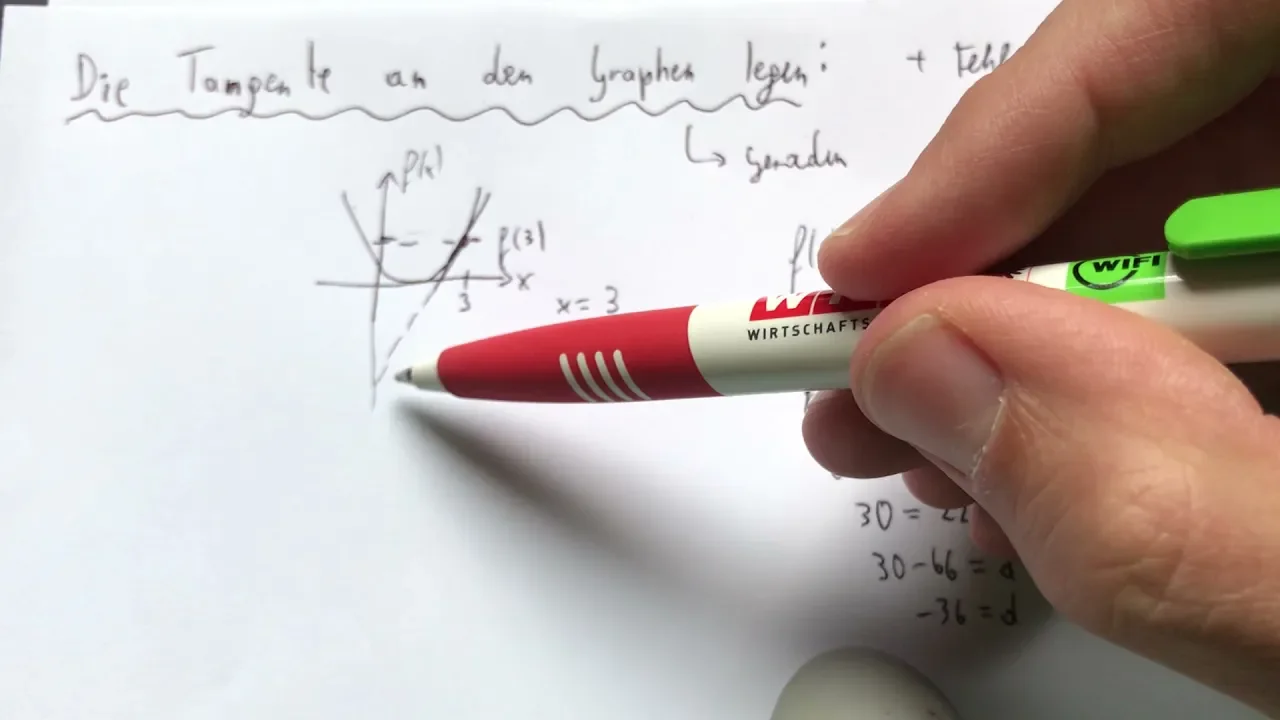 Die Tangente an den Graphen legen: +
↳ Geraden
f(x)
f(3)
x
3
x = 3
f(
WIFI
WIRTSCHAFTS
30 = 22
30 - 66 = d
-36 = d